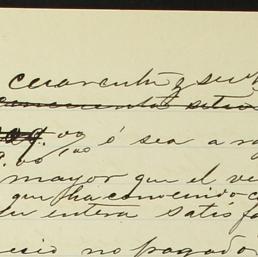 cuarenta y seis
cincuenta
00/100 ó sea a ra
mayor que el ve
que ha convenido c
su entera satisfa
recio no pagado